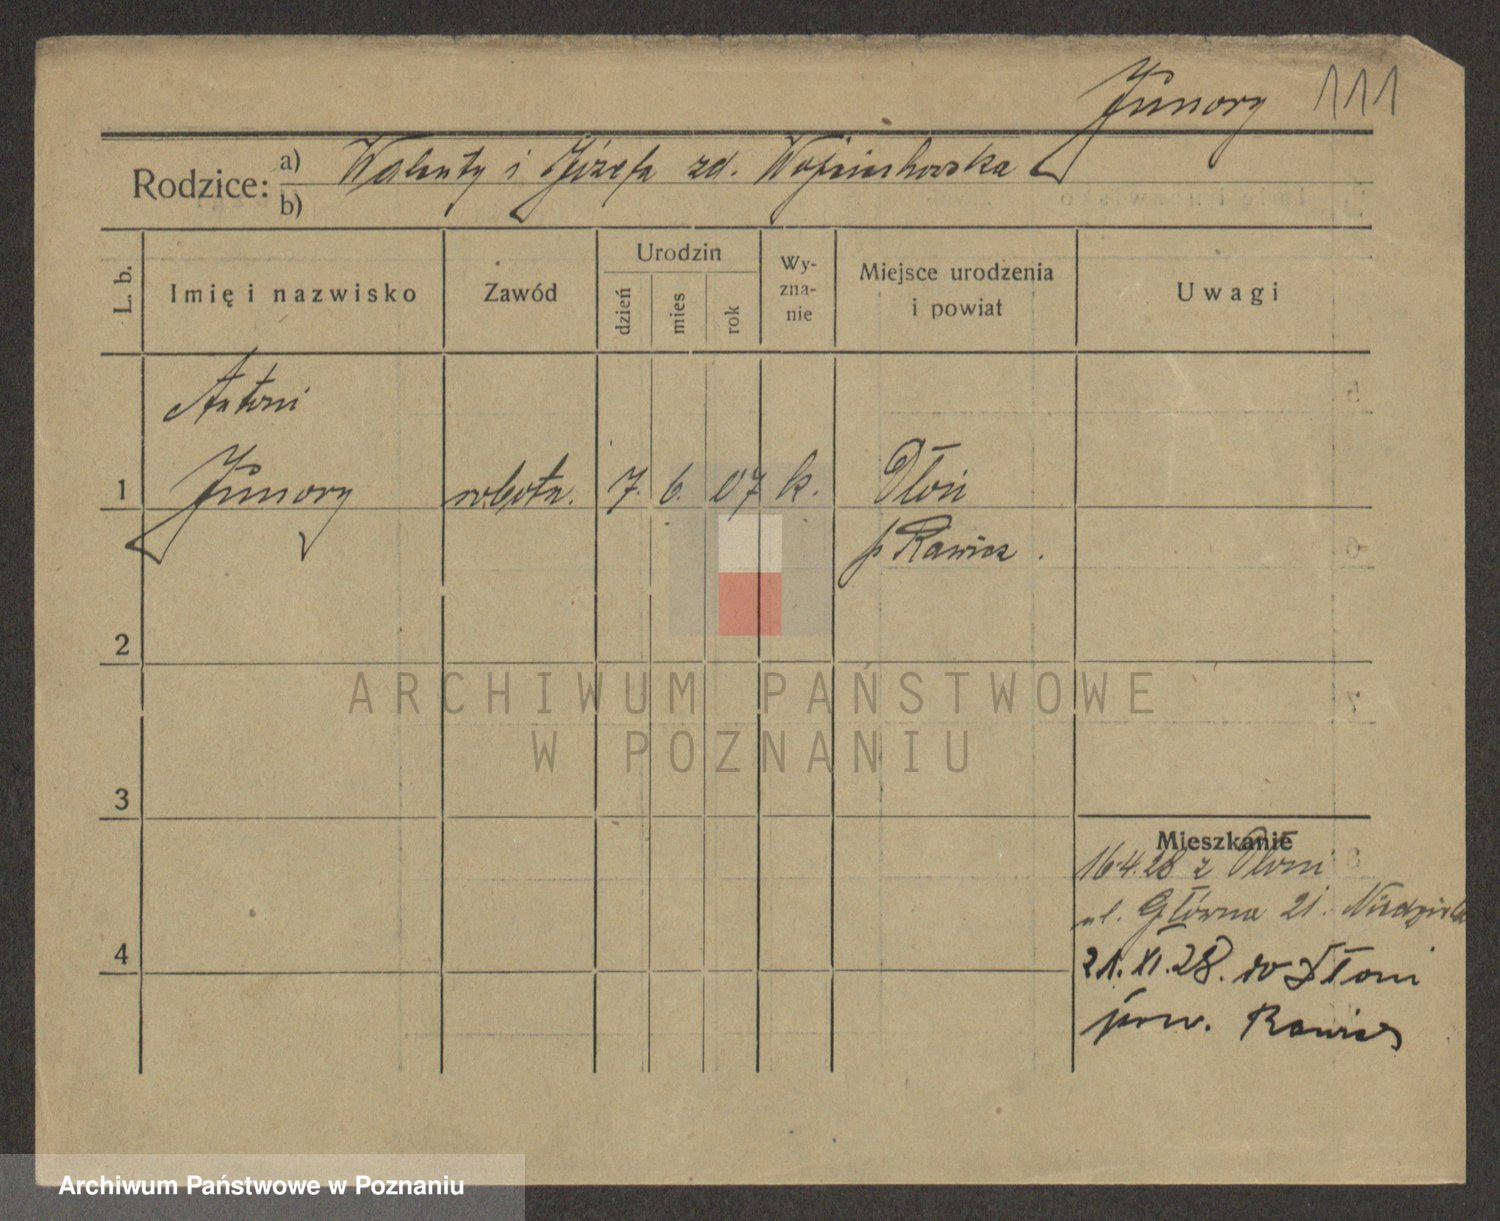 Junory 111
Rodzice: a) Walenty i Józefa zd. Wojciechowska
b)
L. b. Imię i nazwisko Zawód Urodzin dzień mies rok Wyznanie Miejsce urodzenia i powiat Uwagi
Antoni
1 Junory robotn. 7. 6. 07 k. Dłoń
p Rawicz.
2
3
Mieszkanie
16.4.28 z Dłoni
ul. Główna 21.
4 21.XI.28. do Dłoni
pow. Rawicz
ARCHIWUM PAŃSTWOWE
W POZNANIU
Archiwum Państwowe w Poznaniu